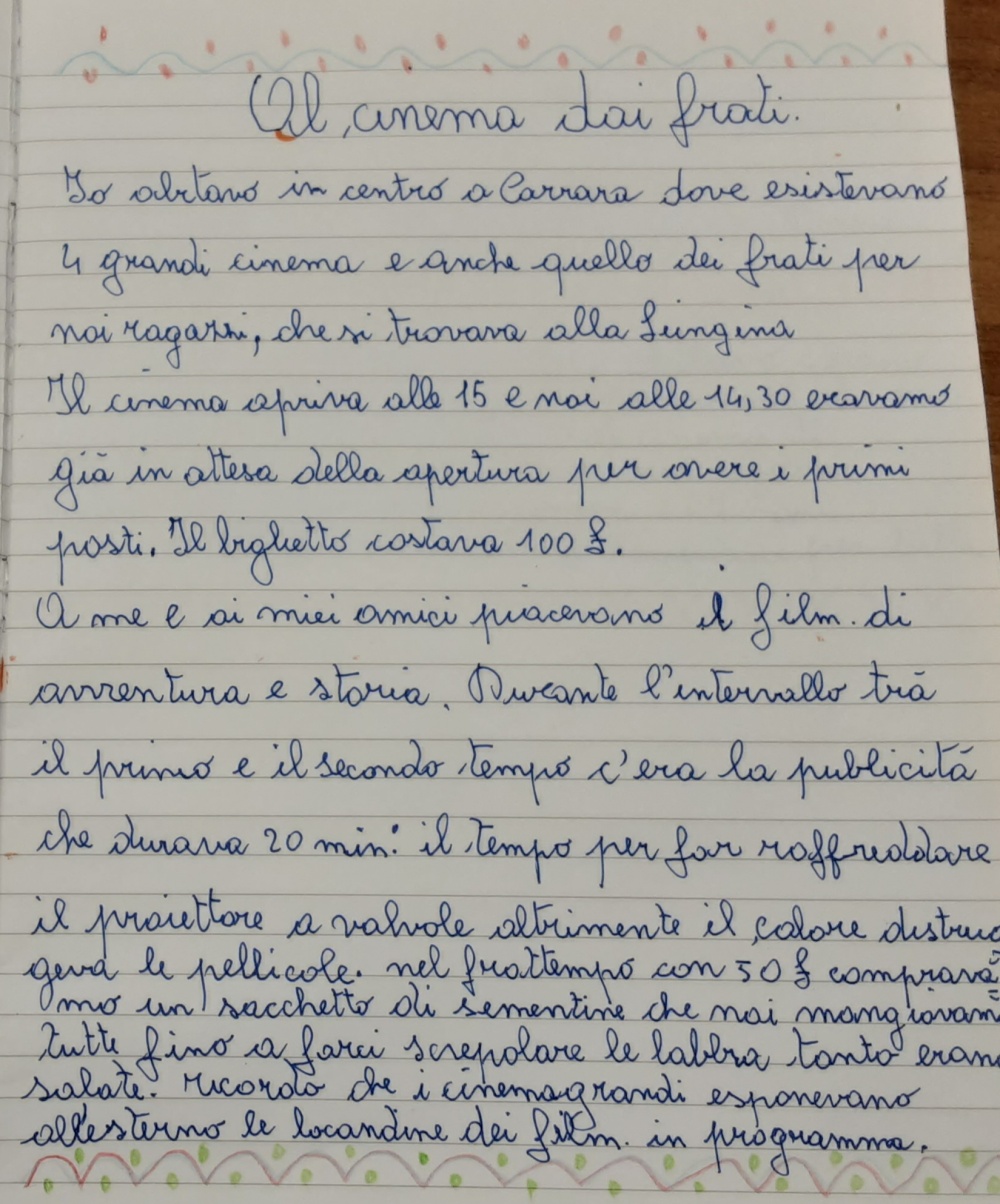 Al cinema dai frati.
Io abitavo in centro a Carrara dove esistevano
4 grandi cinema e anche quello dei frati per
noi ragazzi, che si trovava alla Lungina
Il cinema apriva alle 15 e noi alle 14,30 eravamo
già in attesa della apertura per avere i primi
posti. Il biglietto costava 100 £.
A me e ai miei amici piacevano i film di
avventura e storia. Durante l'intervallo trà
il primo e il secondo tempo c'era la publicità
che durava 20 min: il tempo per far raffreddare
il proiettore a valvole altrimente il calore distrug
geva le pellicole. nel frattempo con 50 £ comprava=
mo un sacchetto di sementine che noi mangiavam
tutte fino a farci screpolare le labbra tanto eran
salate. ricordo che i cinema grandi esponevano
all'esterno le locandine dei film in programma.